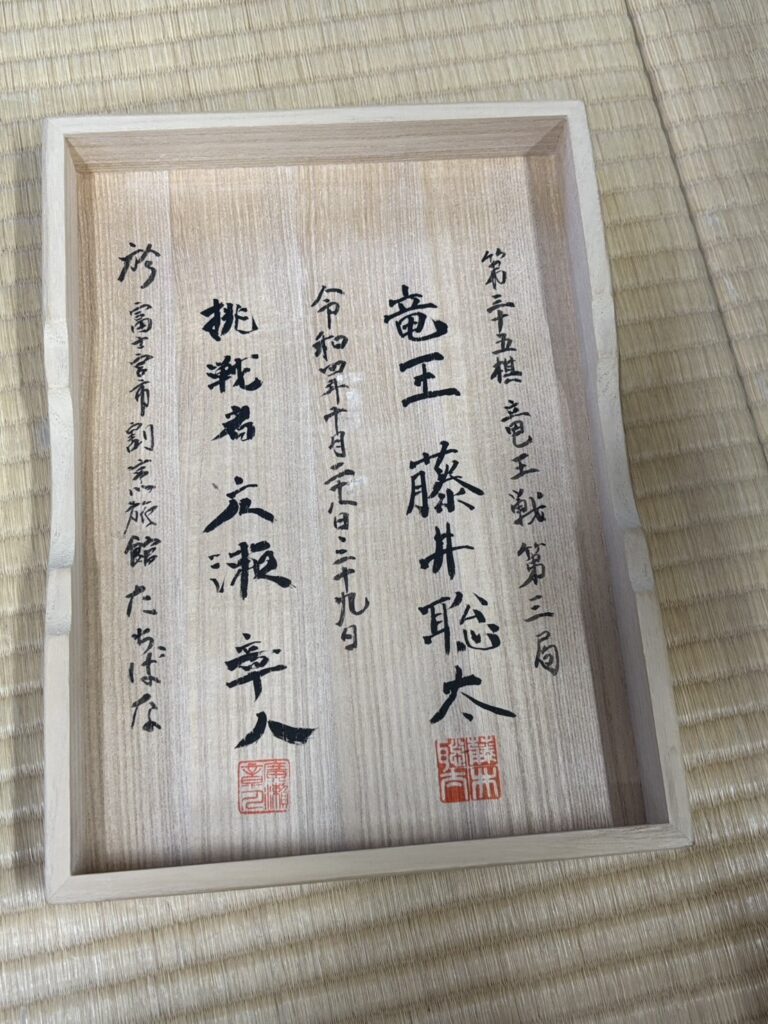 第三十五棋 竜王戦 第三局
竜王 藤井聡太
藤井聡太
令和四年十月二十八日・二十九日
挑戦者 広瀬章人
廣瀬章人
於 富士宮市 割烹旅館 たちばな